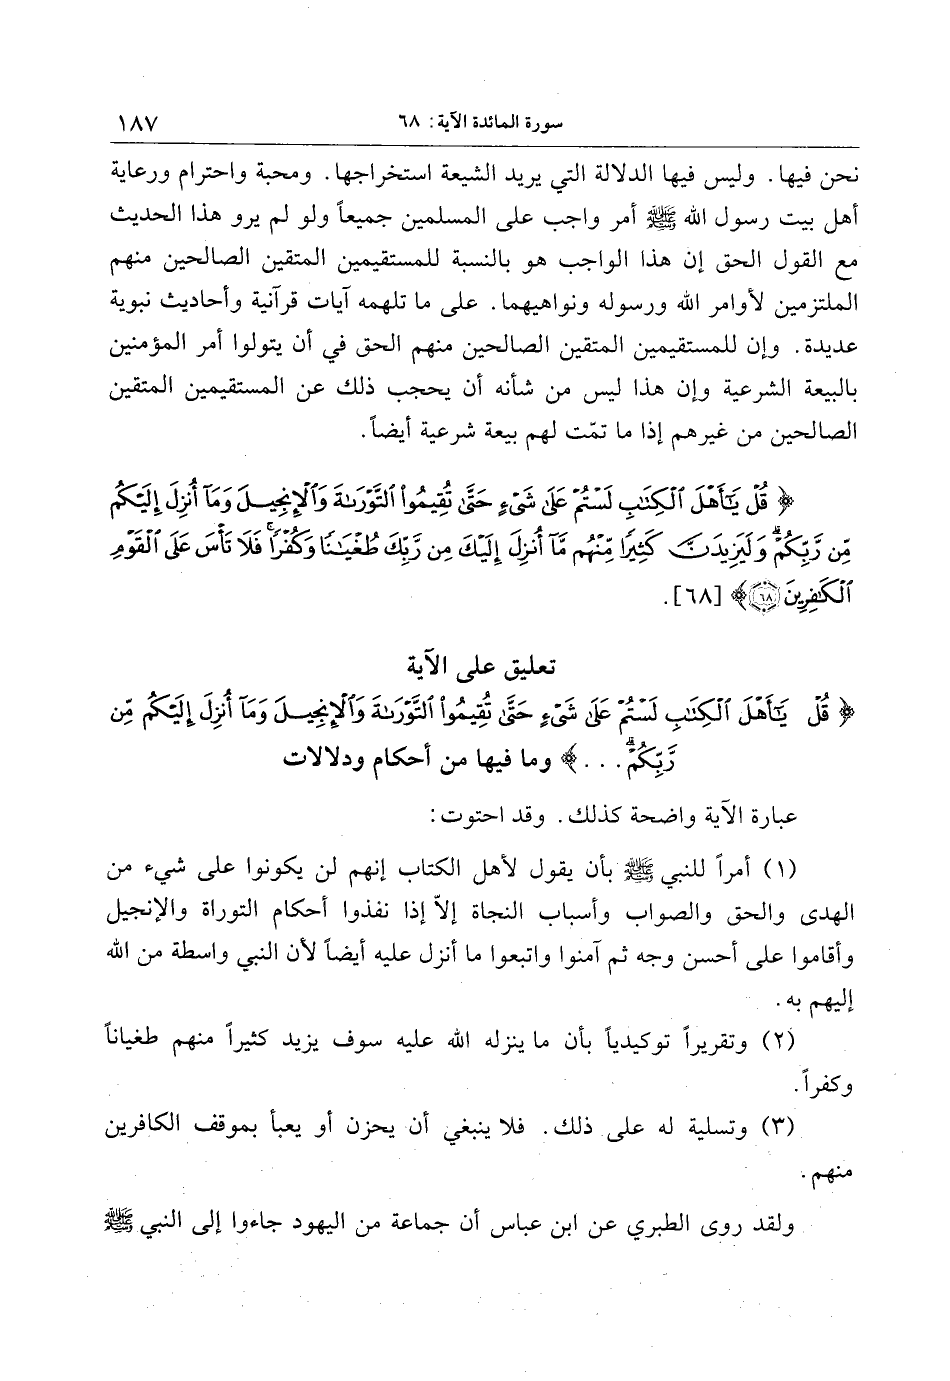 سورة المائدة الآية: ٦٨ ١٨٧
نحن فيها. وليس فيها الدلالة التي يريد الشيعة استخراجها. ومحبة واحترام ورعاية
أهل بيت رسول الله ﷺ أمر واجب على المسلمين جميعاً ولو لم يرو هذا الحديث
مع القول الحق إن هذا الواجب هو بالنسبة للمستقيمين المتقين الصالحين منهم
الملتزمين لأوامر الله ورسوله ونواهيهما. على ما تلهمه آيات قرآنية وأحاديث نبوية
عديدة. وإن للمستقيمين المتقين الصالحين منهم الحق في أن يتولوا أمر المؤمنين
بالبيعة الشرعية وإن هذا ليس من شأنه أن يحجب ذلك عن المستقيمين المتقين
الصالحين من غيرهم إذا ما تمّت لهم بيعة شرعية أيضاً.
﴿ قُلْ يَٰٓأَهْلَ ٱلْكِتَٰبِ لَسْتُمْ عَلَىٰ شَىْءٍ حَتَّىٰ تُقِيمُوا۟ ٱلتَّوْرَىٰةَ وَٱلْإِنجِيلَ وَمَآ أُنزِلَ إِلَيْكُم
مِّن رَّبِّكُمْ ۗ وَلَيَزِيدَنَّ كَثِيرًا مِّنْهُم مَّآ أُنزِلَ إِلَيْكَ مِن رَّبِّكَ طُغْيَٰنًا وَكُفْرًا ۖ فَلَا تَأْسَ عَلَى ٱلْقَوْمِ
ٱلْكَٰفِرِينَ ٦٨ ﴾ [٦٨].
تعليق على الآية
﴿ قُلْ يَٰٓأَهْلَ ٱلْكِتَٰبِ لَسْتُمْ عَلَىٰ شَىْءٍ حَتَّىٰ تُقِيمُوا۟ ٱلتَّوْرَىٰةَ وَٱلْإِنجِيلَ وَمَآ أُنزِلَ إِلَيْكُم مِّن
رَّبِّكُمْ ۗ . . . ﴾ وما فيها من أحكام ودلالات
عبارة الآية واضحة كذلك. وقد احتوت:
(١) أمراً للنبي ﷺ بأن يقول لأهل الكتاب إنهم لن يكونوا على شيء من
الهدى والحق والصواب وأسباب النجاة إلاّ إذا نفذوا أحكام التوراة والإنجيل
وأقاموا على أحسن وجه ثم آمنوا واتبعوا ما أنزل عليه أيضاً لأن النبي واسطة من الله
إليهم به.
(٢) وتقريراً توكيدياً بأن ما ينزله الله عليه سوف يزيد كثيراً منهم طغياناً
وكفراً.
(٣) وتسلية له على ذلك. فلا ينبغي أن يحزن أو يعبأ بموقف الكافرين
منهم.
ولقد روى الطبري عن ابن عباس أن جماعة من اليهود جاءوا إلى النبي ﷺ